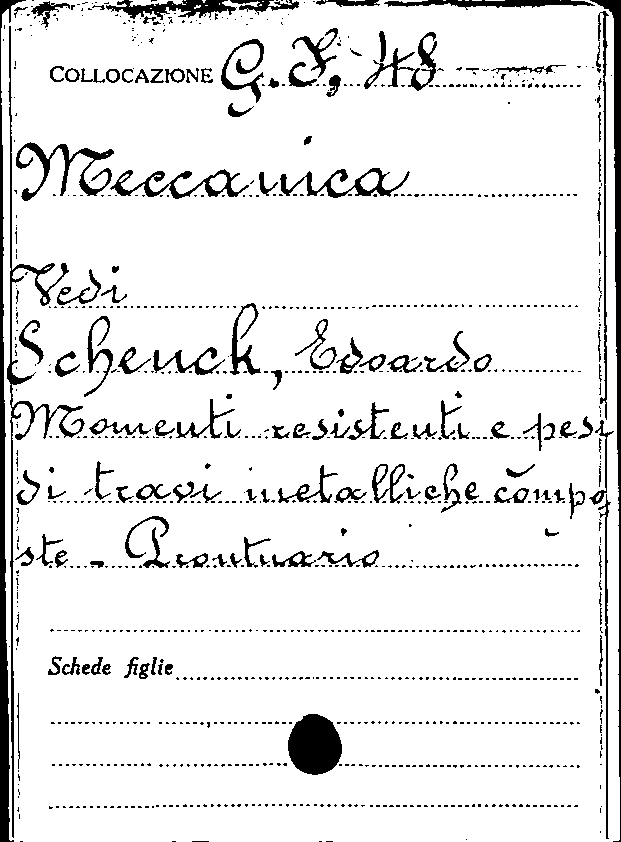 COLLOCAZIONE G. F. 48
Meccanica
Vedi
Schenck, Edoardo
Momenti resistenti e pesi
di travi metalliche compo
ste - Prontuario
Schede figlie